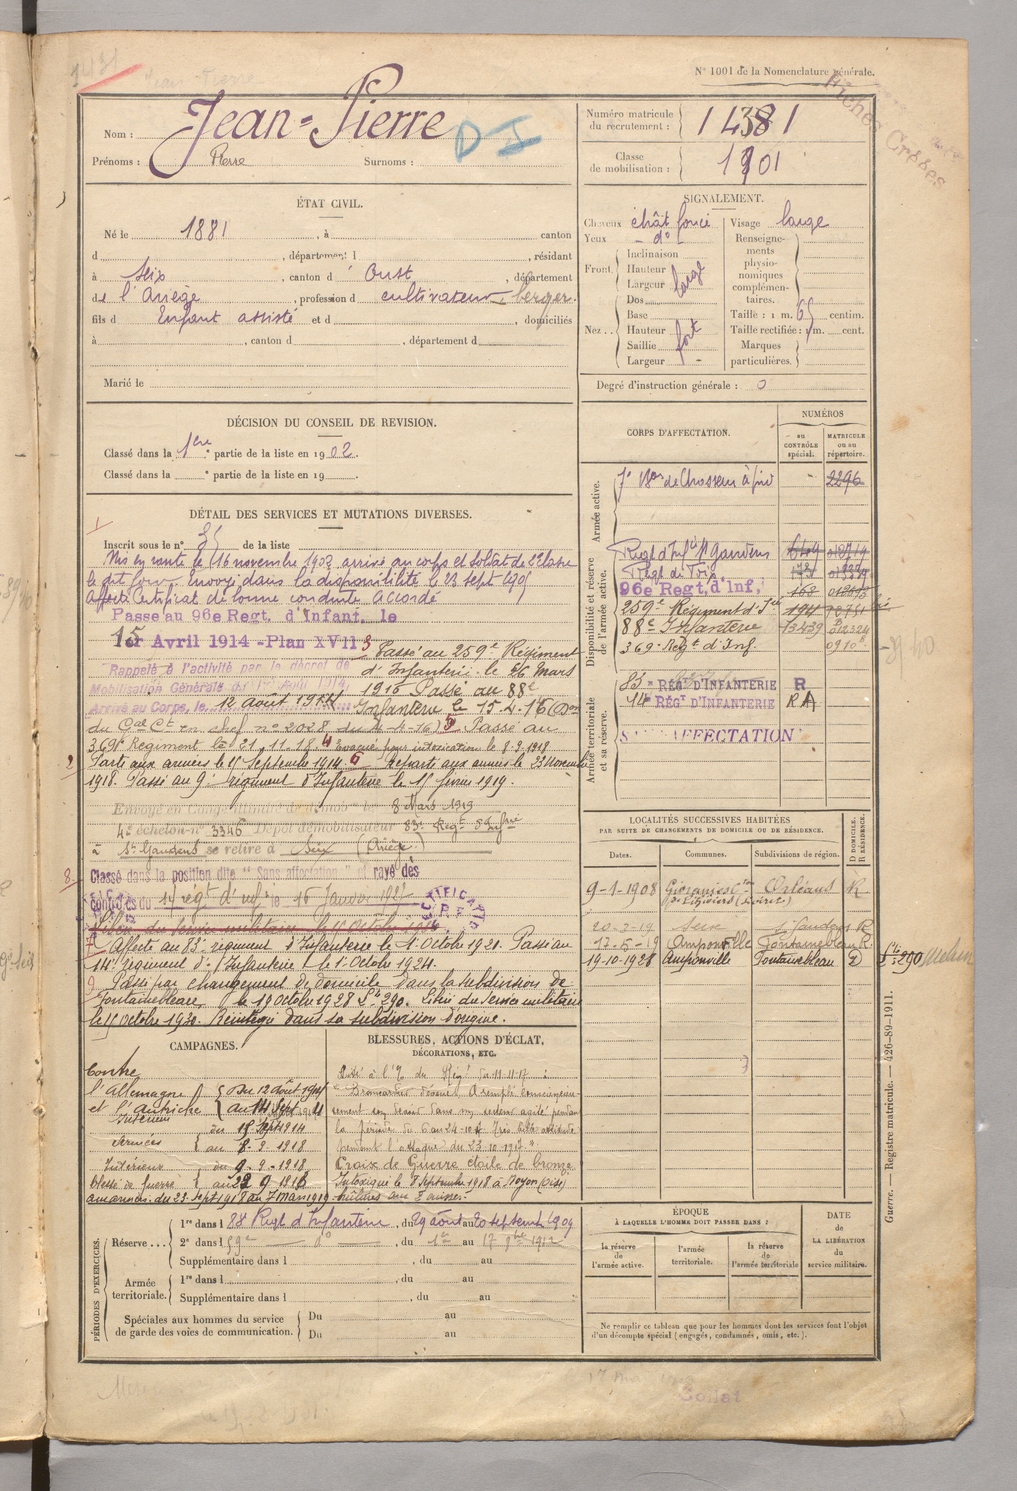 N° 1001 de la Nomenclature générale.
Fiches Croisées
Nom : Jean-Pierre
Prénoms : Pierre Surnoms :
Numéro matricule du recrutement : 1381
Classe de mobilisation : 1901
ÉTAT CIVIL.
Né le 1881, à canton
d , département d , résidant
à Seix, canton d'Oust, département
de l'Ariège, profession d cultivateur, berger.
fils d Enfant assisté et d , domiciliés
à , canton d , département d
Marié le
SIGNALEMENT.
Cheveux chât foncé
Yeux d°
Front. Inclinaison
Hauteur
Largeur large
Nez.. Dos
Base
Hauteur fort
Saillie
Largeur -
Visage large
Renseignements physionomiques complémentaires.
Taille : 1 m. 65 centim.
Taille rectifiée : 1 m. cent.
Marques particulières.
Degré d'instruction générale : 0
DÉCISION DU CONSEIL DE REVISION.
Classé dans la 1ère partie de la liste en 1902.
Classé dans la e partie de la liste en 19 .
DÉTAIL DES SERVICES ET MUTATIONS DIVERSES.
Inscrit sous le n° 35 de la liste
Mis en route le 16 novembre 1902 arrivé au corps et soldat de 2e classe
le dit jour. Envoyé dans la disponibilité le 23 sept 1905
Certificat de bonne conduite accordé
Passe au 96e Regt. d'Infant. le
15 Avril 1914 - Plan XVII 3 Passé au 259e Régiment
d'Infanterie le 26 Mars
Rappelé à l'activité par le décret de
Mobilisation Générale du 1er Août 1914
1916 Passé au 88e
Arrivé au Corps, le 12 août 1914 Infanterie le 15.4.16 (Don
du Gal Ct en chef n° 2028 du 4.16) 5 Passé au
369e Régiment le 21.11.16. 4 Evacué pour intoxication le 8.9.1918
Parti aux armées le 15 Septembre 1914. 6 Reparti aux armées le 23 Novembre
1918. Passé au 9e régiment d'Infanterie le 15 février 1919.
Envoyé en Congé illimité de démob le 8 Mars 1919
4e échelon n° 3346 Dépôt démobilisateur 83e Regt d'Infrie
à St Gaudens se retire à Seix (Ariège)
Classé dans la position dite "Sans affectation" et rayé des
contrôles du 14 régt d'inf le 16 Janvier 1927
Libéré du service militaire le 15 octobre 19
7 Affecté au 83e régiment d'Infanterie le 1 Octobre 1921. Passé au
14e régiment d'Infanterie le 1 Octobre 1924.
9 Passé par changement de domicile dans la subdivision de
Fontainebleau, le 19 Octobre 1928 Sie 290. Libéré du service militaire
le 15 Octobre 1930. Réintégré dans sa subdivision d'origine.
CORPS D'AFFECTATION.
NUMÉROS
au CONTRÔLE spécial.
MATRICULE ou au répertoire.
Armée active.
7e Bon de Chasseurs à pied - 2296
Disponibilité et réserve de l'armée active.
Régt d'Infie St Gaudens 649
Régt de Foix
96e Regt. d'Inf. 168
259e Régiment d'Inf 194
88e Infanterie 13439
369e Régt d'Inf. 0910
Armée territoriale et sa réserve.
83e RÉGt D'INFANTERIE R
14e RÉGt D'INFANTERIE RA
SANS AFFECTATION
LOCALITÉS SUCCESSIVES HABITÉES
PAR SUITE DE CHANGEMENTS DE DOMICILE OU DE RÉSIDENCE.
Dates. Communes. Subdivisions de région. D DOMICILE. R RÉSIDENCE.
9-1-1908 Orléans R
20-2-19 Seix St Gaudens R
17-5-19 Amponville Fontainebleau R.
19-10-1928 Amponville Fontainebleau D Sie 290 Melun
CAMPAGNES.
Contre
l'Allemagne et l'Autriche
Du 12 août 1914
au 14 Sept 1914
Intérieur
du 15 Sept 1914
Armées
au 8-9-1918
Intérieur du 9-9-1918
Blessé de guerre au 22 9 1918
aux armées. du 23 sept 1918 au 7 mars 1919
BLESSURES, ACTIONS D'ÉCLAT,
DÉCORATIONS, ETC.
Cité à l'O du Régt du 11.11.17 :
"Brancardier dévoué, a rempli consciencieusement son devoir dans un secteur agité pendant
la période du 6 au 24-10-17. Très belle attitude
pendant l'attaque du 23-10-1917".
Croix de Guerre étoile de bronze
Intoxiqué le 8 Septembre 1918 à Noyon (Oise)
PÉRIODES D'EXERCICES.
Réserve...
1re dans l 88e Régt d'Infanterie, du 29 août au 20 septembre 1909
2e dans l 59e d°, du 1er au 17 9bre 1912
Supplémentaire dans l , du au
Armée territoriale.
1re dans l , du au
Supplémentaire dans l , du au
Spéciales aux hommes du service de garde des voies de communication.
Du au
Du au
ÉPOQUE
À LAQUELLE L'HOMME DOIT PASSER DANS :
la réserve de l'armée active.
l'armée territoriale.
la réserve de l'armée territoriale
DATE de LA LIBÉRATION du service militaire.
Ne remplir ce tableau que pour les hommes dont les services font l'objet
d'un décompte spécial (engagés, condamnés, omis, etc.).
Guerre. — Registre matricule. — 426-89-1911.
Soldat